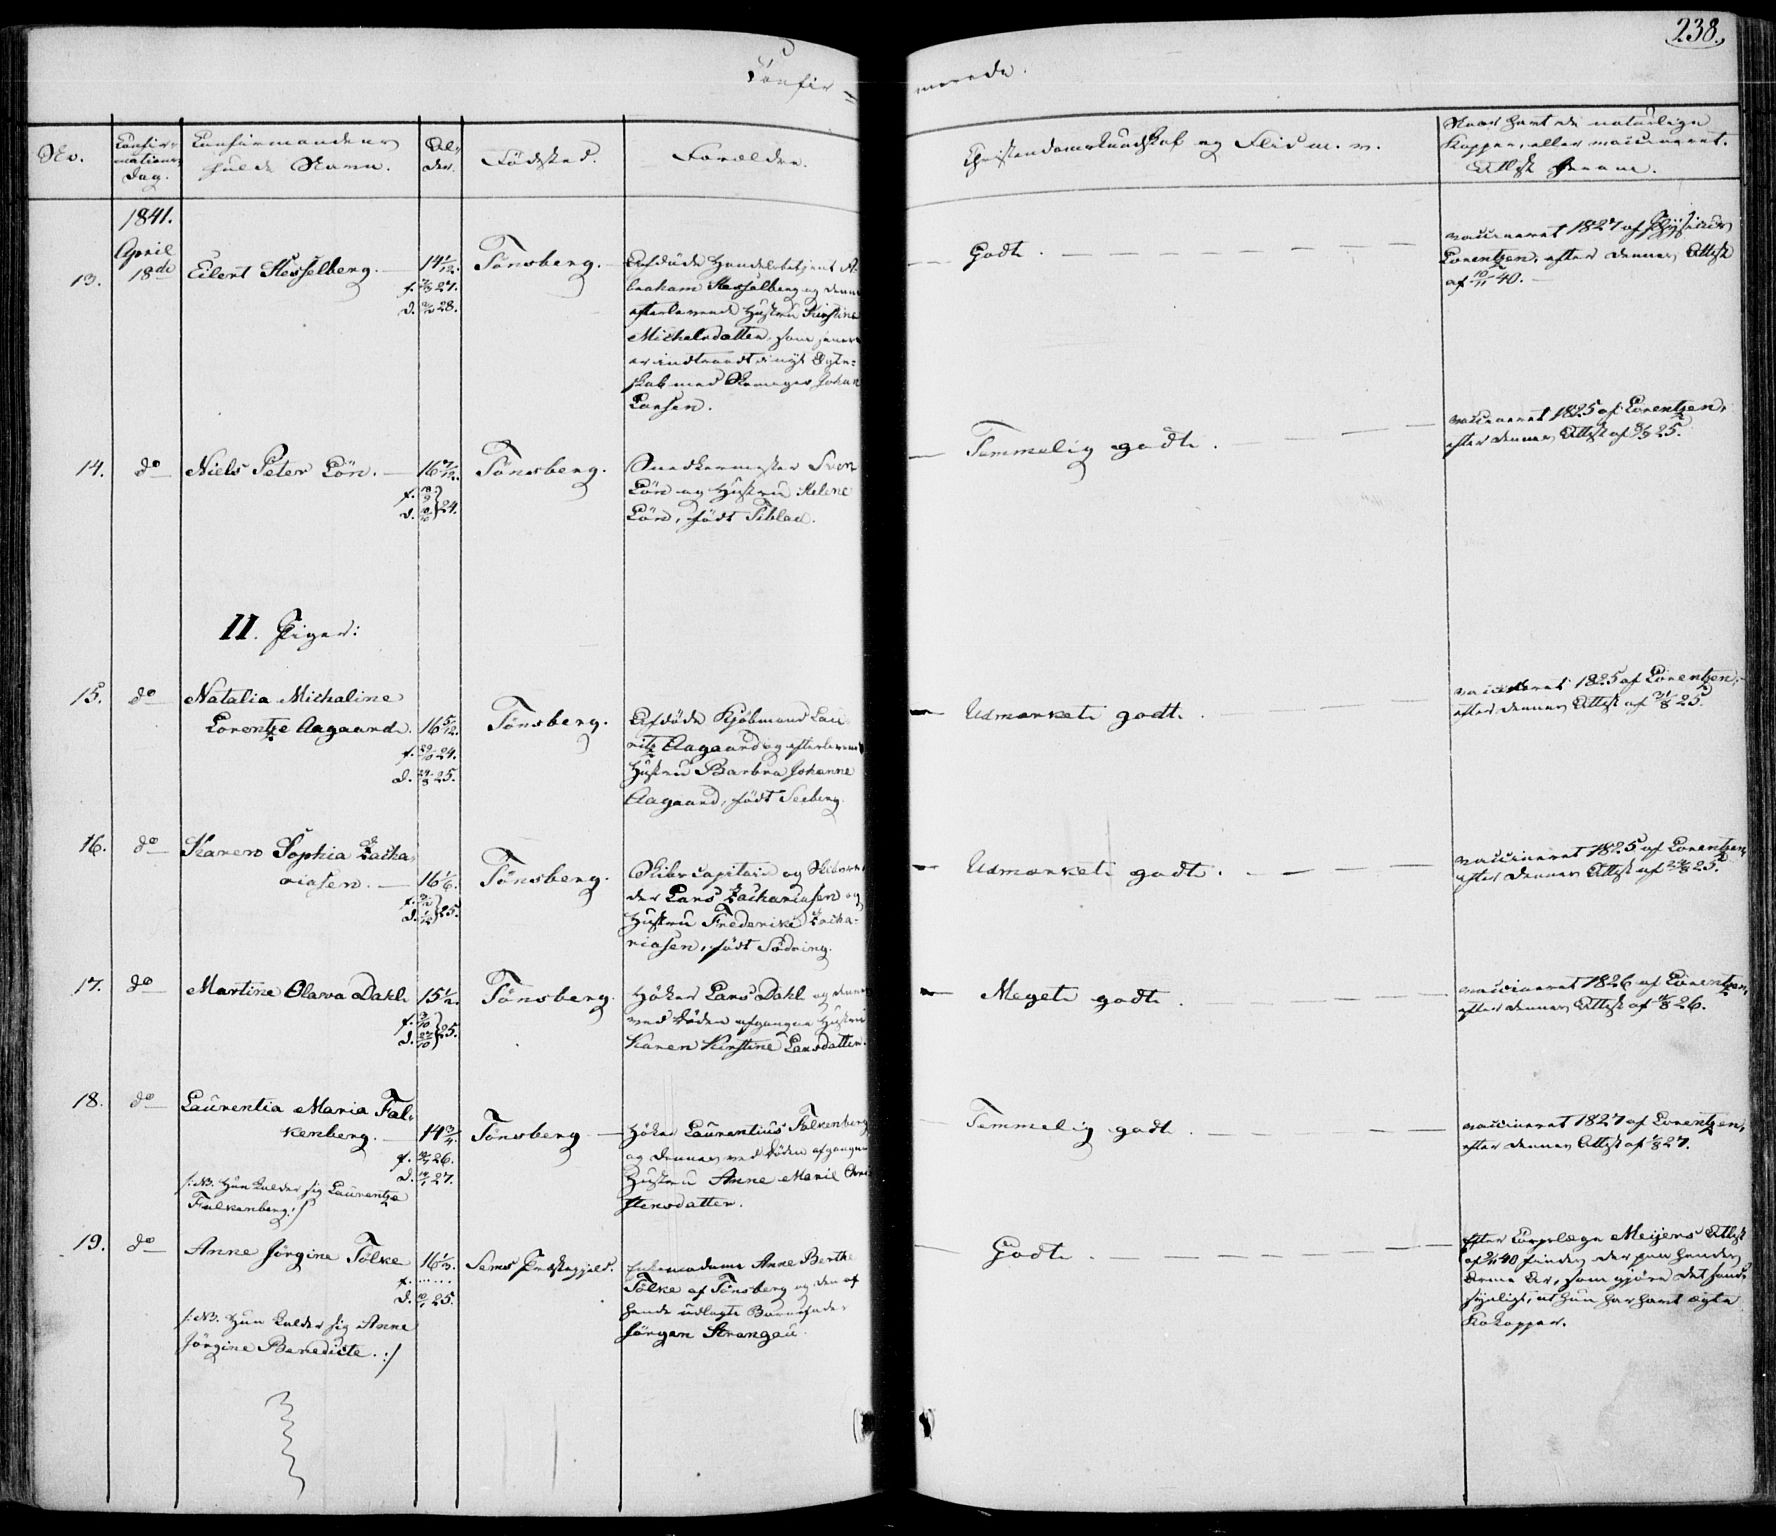 238.
Confir=
merede.
No.
Confir-
mations
Dag.
Confirmandens
fulde Navn.
Al-
der.
Födsted.
Forældre.
Christendomskundskab og Flid m. v.
Naar havt de naturlige
Kopper, eller vaccineret.
Attest herom.
1841.
April
13.
18de
Eilert Hesselberg.
14 1/12.
f. 27.
d. 28.
Tönsberg.
Afdöde Handelsbetjent A-
braham Hesselberg og dennes
efterlevende Hustru Kirstine
Michelsdatter, som senere
er indtraadt i nyt Ægte-
skab med Skomager Johan
Larsen.
Godt.
vaccineret 1827 af Physicus
Lorentzen, efter dennes Attest
af 10/11 40.
14.
do
Niels Peter Lön.
16 7/12.
f. 18/9
d. 24.
Tönsberg.
Snedkermester Sven
Lön og Hustru Helene
Lön, födt Siblau.
Temmelig godt.
vaccineret 1825 af Lorentzen,
efter dennes Attest af 25.
II. Piger:
15.
do
Natalia Michaline
Lorentze Aagaard.
16 5/12.
f. 24.
d. 25.
Tönsberg.
Afdöde Kjöbmand Lau-
ritz Aagaard og efterlevende
Hustru Barbra Johanne
Aagaard, födt Seeberg.
Udmærket godt.
vaccineret 1825 af Lorentzen,
efter dennes Attest af 21/8 25.
16.
do
Karen Sophia Zacha-
riasen.
16 1/6.
f.
d. 25.
Tönsberg.
Skibscapitain og Skibsre-
der Lars Zachariasen og
Hustru Frederike Zacha-
riasen, födt Södring.
Udmærket godt.
vaccineret 1825 af Lorentzen,
efter dennes Attest af 25.
17.
do
Martine Olava Dahl.
15 1/2.
f.
d. 25.
Tönsberg.
Höker Lars Dahl og dennes
ved Döden afgangne Hustru
Karen Kirstine Larsdatter.
Meget godt.
vaccineret 1826 af Lorentzen,
efter dennes Attest af 26.
18.
do
Laurentia Maria Fal-
kenberg.
14 3/4.
f. 26.
d. 27.
/: NB. Hun kalder sig Laurentze
Falkenberg :/
Tönsberg
Höker Laurentius Falkenberg
og dennes ved Döden afgangne
Hustru Anne Marie Chri-
stensdatter.
Temmelig godt
vaccineret 1827 af Lorentzen,
efter dennes Attest af 27.
19.
do
Anne Jörgine Tölke
16 1/3.
f. ......
d. 25.
/: NB. Hun kalder sig Anne
Jörgine Benedicte. :/
Sems Præstegjeld.
Enkemadame Anne Berthe
Tölke af Tönsberg og den af
hende udlagte Barnefader
Jörgen Strangau.
Godt.
Efter Corpslæge Meyers Attest
af 40 findes der paa hendes
Arme Ar, som gjöre det sand-
synligt, at hun har havt ægte
Kokopper.